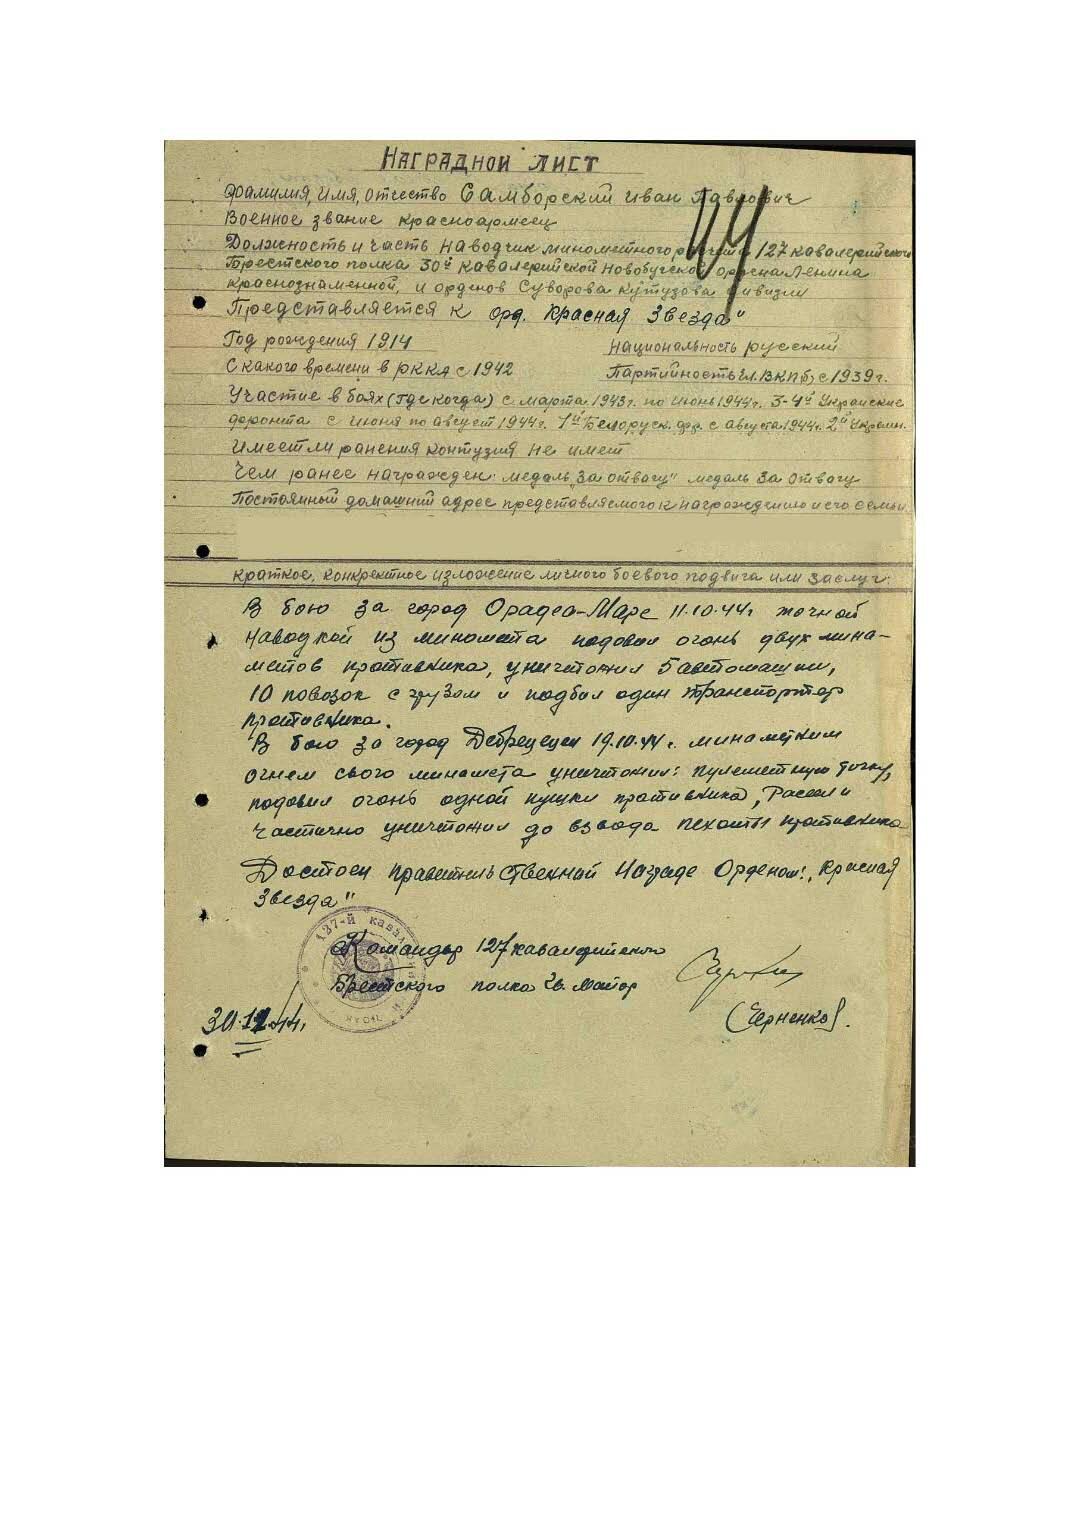 Наградной лист
Фамилия, имя, отчество Самборский Иван Павлович
Военное звание красноармеец
Должность и часть наводчик минометного расчета 127 кавалерийского
Брестского полка 30й кавалерийской Новобугской ордена Ленина
краснознаменной, и орденов Суворова Кутузова дивизии
Представляется к орд. Красная Звезда"
Год рождения 1914 Национальность русский
С какого времени в РККА с 1942 Партийность чл. ВКП(б) с 1939 г.
Участие в боях (где когда) с марта 1943г. по июнь 1944г. 3-4й Украинские
фронта с июня по август 1944г. 1й Белоруск. фр. с августа 1944г. 2й Украин.
Имеет ли ранения контузия не имеет
Чем ранее награжден: медаль „За отвагу" медаль За отвагу
Постоянный домашний адрес представляемого к награждению и его семьи
краткое, конкретное изложение личного боевого подвига или заслуг:
В бою за город Орадеа-Маре 11.10.44г точной
наводкой из миномета подовил огонь двух мина-
метов противника, уничтожил 5 автомашин,
10 повозок с грузом и подбил один транспортер
противника.
В бою за город Дебрецен 19.10.44 г. минаметким
огнем свого минамета уничтожил: пулеметную точку,
подовил огонь одной пушки противника, рассеял и
частично уничтожил до взвода пехоты противника
Достоен правительственной Награде Орденом: „Красная
Звезда"
127-й кавал
Командир 127 кавалерийского
Брестского полка Гв. Майор
(Черненко).
30.12.44г.